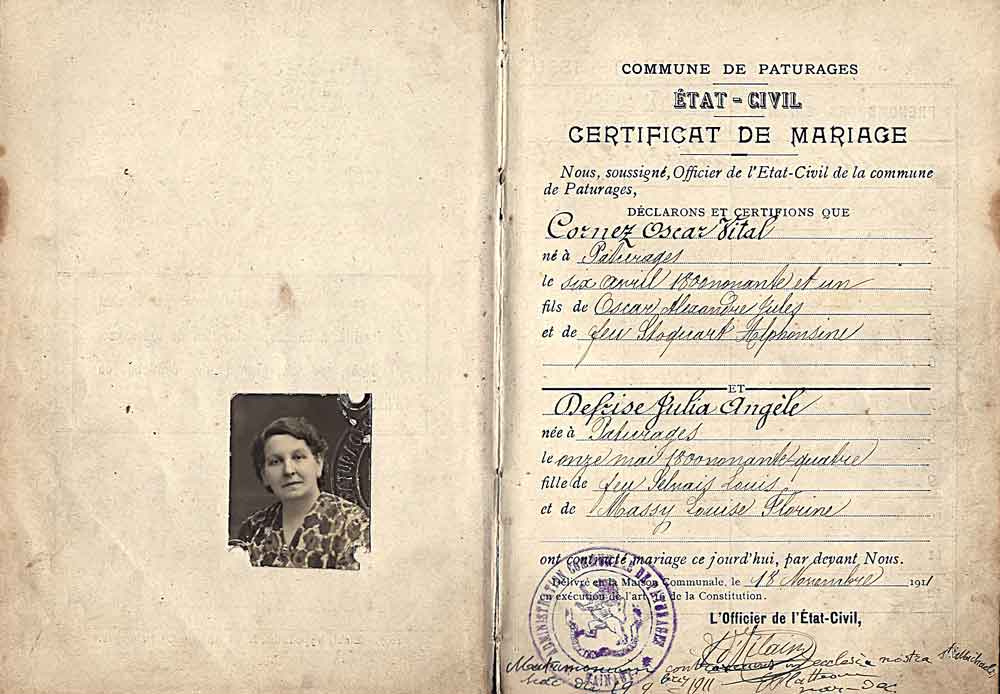 COMMUNE DE PATURAGES
ÉTAT-CIVIL
CERTIFICAT DE MARIAGE
Nous, soussigné, Officier de l'Etat-Civil de la commune
de Paturages,
DÉCLARONS ET CERTIFIONS QUE
Cornez Oscar Vital
né à Paturages
le six avril 1800nonante et un
fils de Oscar Alexandre Jules
et de feu Stoquart Alphonsine
ET
Defrise Julia Angèle
née à Paturages
le onze mai 1800nonante-quatre
fille de feu Louis
et de Massy Louise Florine
ont contracté mariage ce jourd'hui, par devant Nous.
Délivré en la Maison Communale, le 18 Novembre 1911
en exécution de l'art. 16 de la Constitution.
L'Officier de l'État-Civil,
ADMINISTRATION COMMUNALE DE PATURAGES
HAINAUT
ecclesia nostra
1911